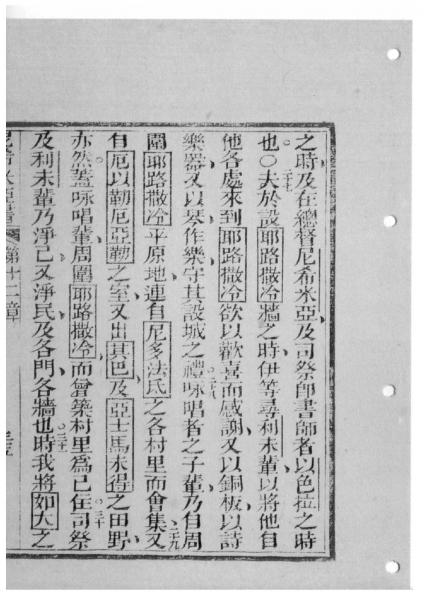 之時及在總督尼希米亞及司祭即書師者以色拉之時
也○二十七夫於設耶路撒冷牆之時伊等尋利未輩以將他自
他各處來到耶路撒冷欲以歡喜而感謝又以銅板以詩
樂器又以琴作樂守其設城之禮二十八咏唱者之子輩乃自周
圍耶路撒冷平原地連自尼多法氏之各村里而會集二十九又
自厄以勒厄亞勒之室又出其巴及亞士馬未得之田野
亦然蓋咏唱輩周圍耶路撒冷而曾築村里為己住三十司祭
及利未輩乃淨己又淨民及各門各牆也三十一時我將如大之
尼希米亞書 第十二章